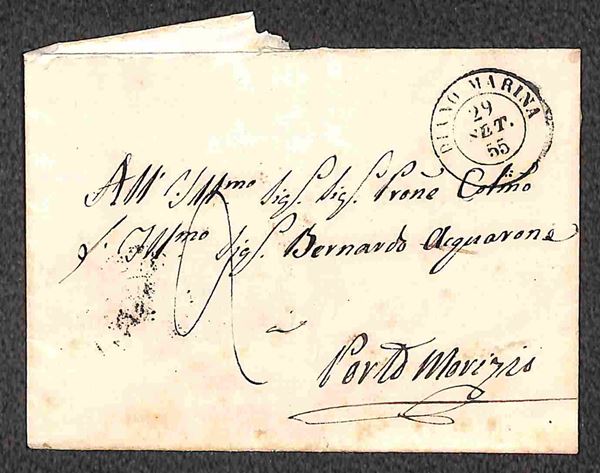 DIANO MARINA
29
SET.
55
All' Ill.mo Sig.r Sig.r Prone Col.mo
Il Ill.mo Sig.r Bernardo Acquarone
2
Porto Morizio